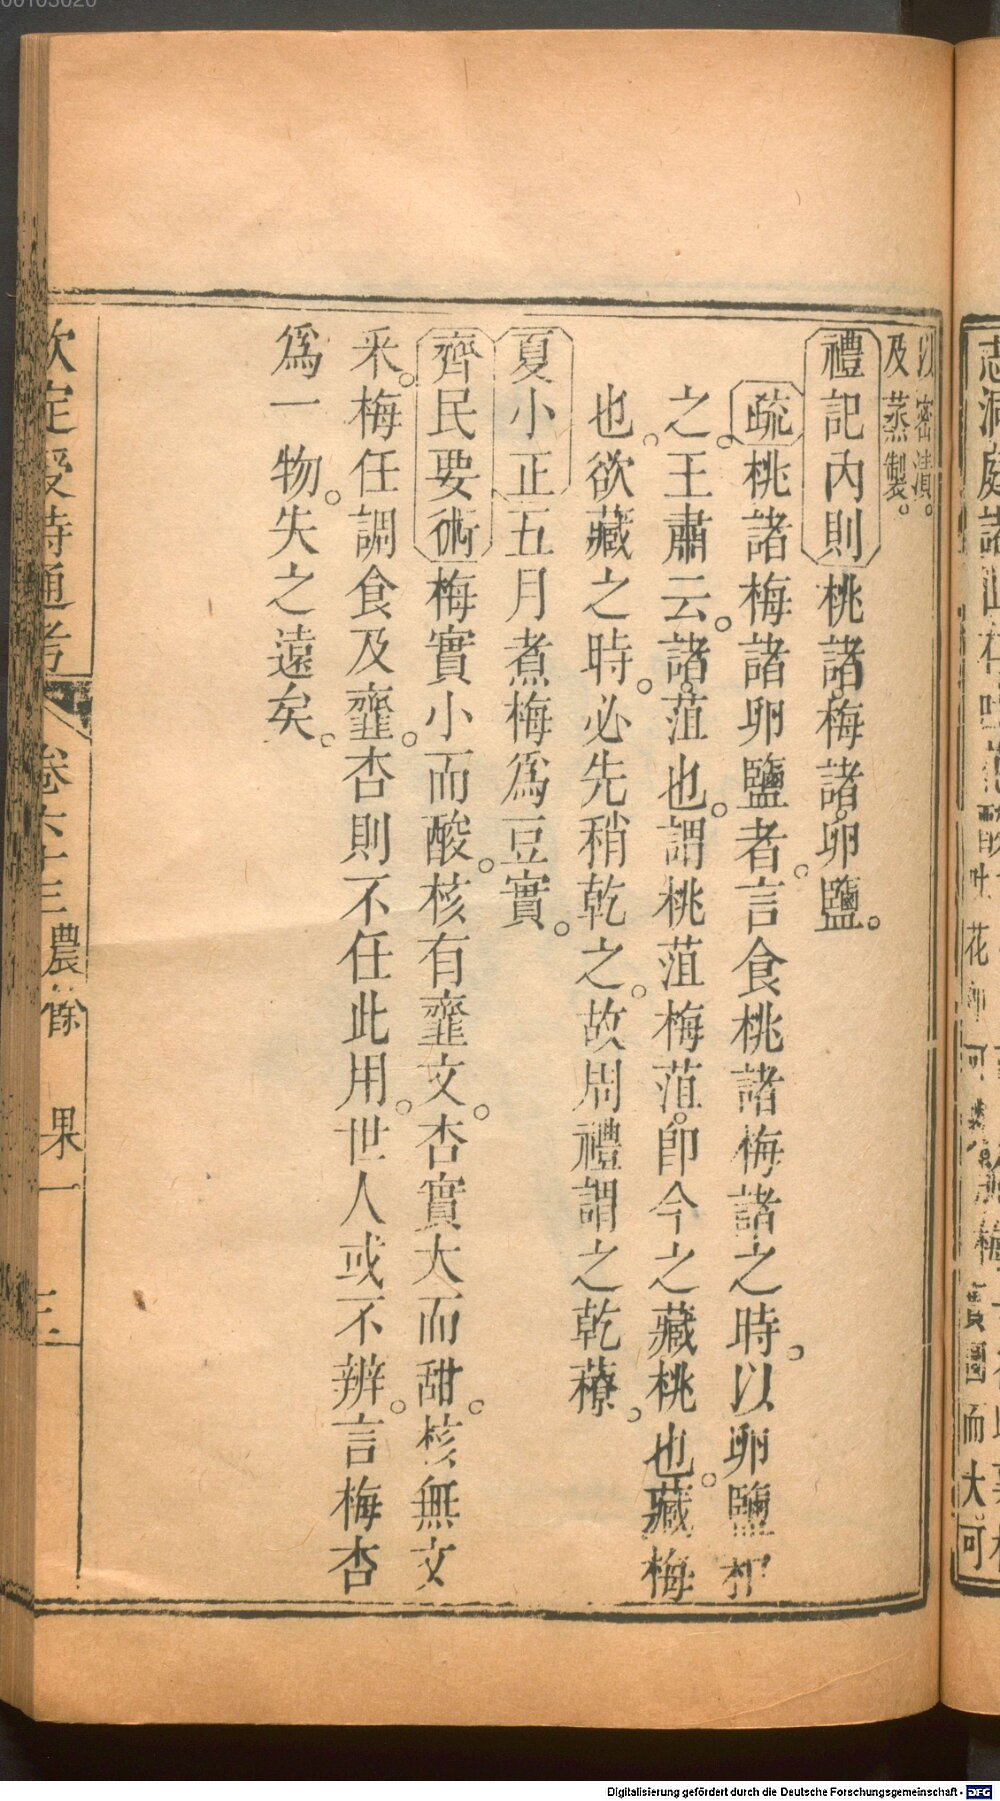 以蜜漬。
及蒸製。
禮記內則桃諸。梅諸。卵鹽。
疏桃諸梅諸卵鹽者。言食桃諸梅諸之時。以卵鹽和
之。王肅云。諸。菹也。謂桃菹梅菹。卽今之藏桃也。藏梅
也。欲藏之時。必先稍乾之。故周禮謂之乾䕩。
夏小正五月煮梅爲豆實。
齊民要術梅實小而酸。核有虀文。杏實大而甜。核無文
釆。梅任調食及虀。杏則不任此用。世人或不辨。言梅杏
爲一物。失之遠矣。
欽定授時通考 卷六十三 農餘 果一 三
Digitalisierung gefördert durch die Deutsche Forschungsgemeinschaft - DFG